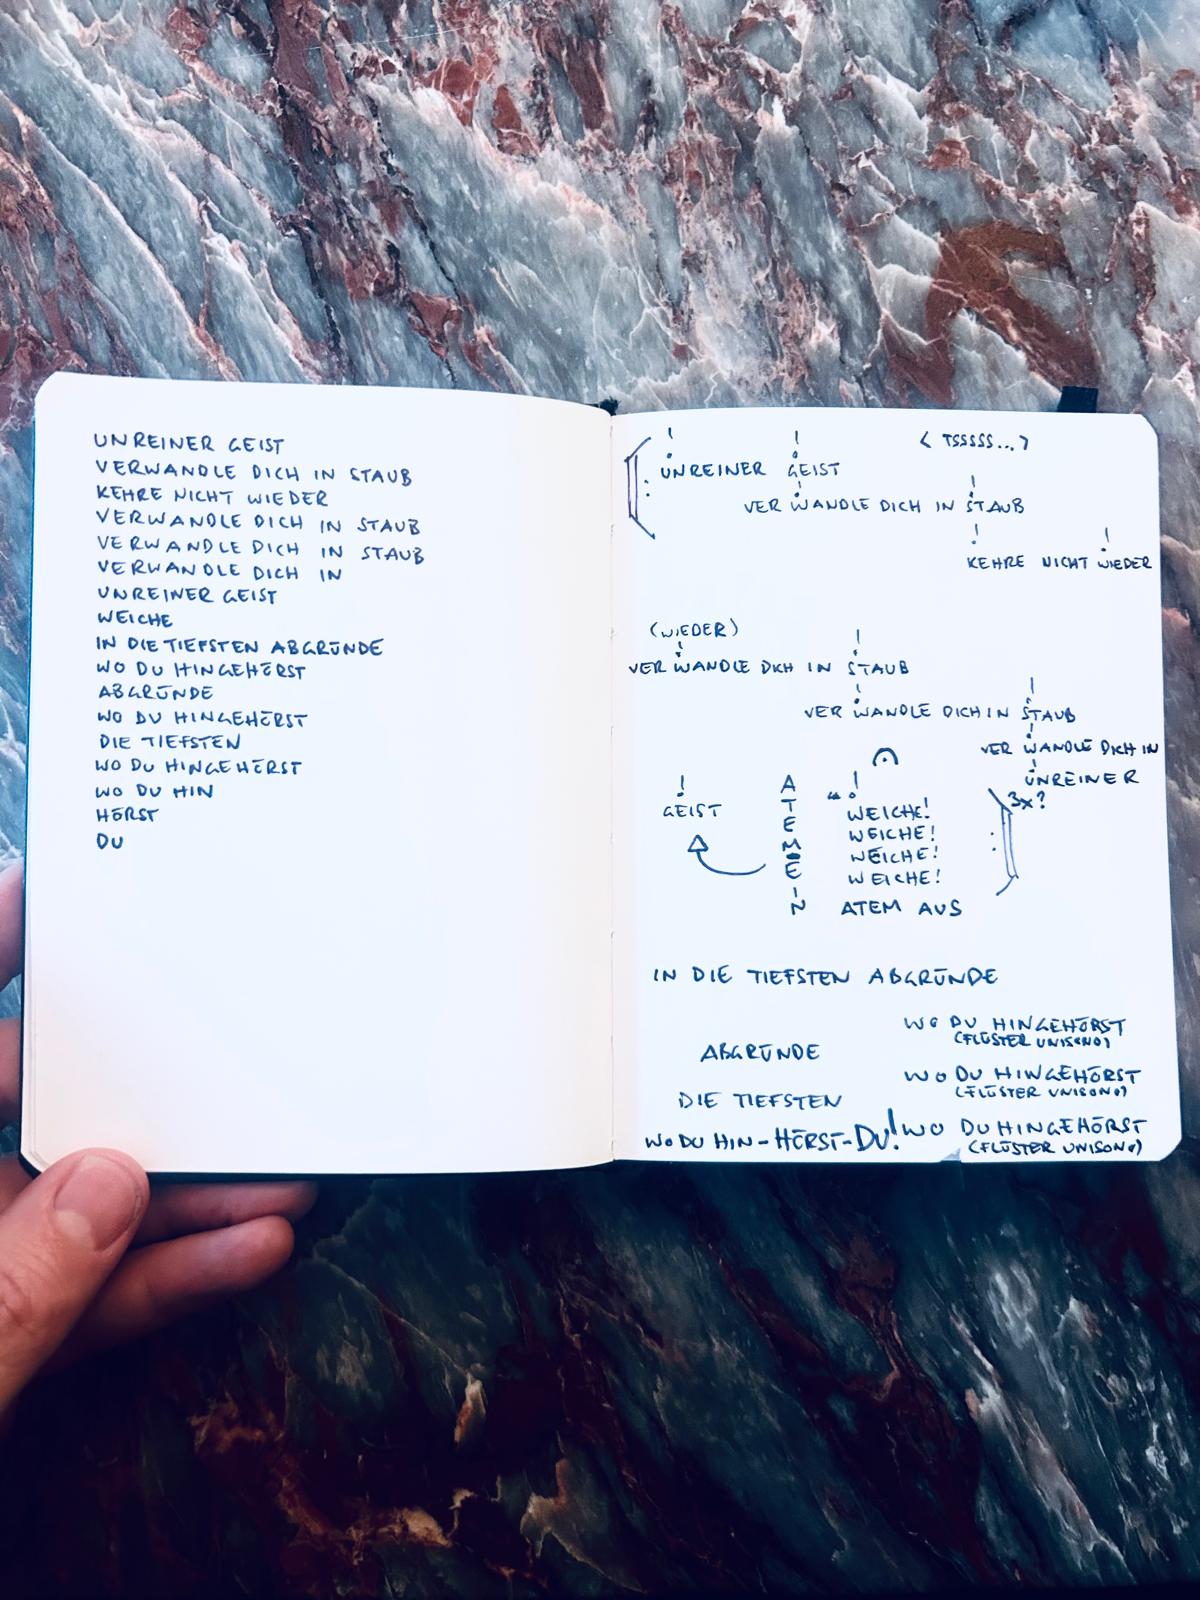 UNREINER GEIST
VERWANDLE DICH IN STAUB
KEHRE NICHT WIEDER
VERWANDLE DICH IN STAUB
VERWANDLE DICH IN STAUB
VERWANDLE DICH IN
UNREINER GEIST
WEICHE
IN DIE TIEFSTEN ABGRÜNDE
WO DU HINGEHÖRST
ABGRÜNDE
WO DU HINGEHÖRST
DIE TIEFSTEN
WO DU HINGEHÖRST
WO DU HIN
HÖRST
DU
< TSSSSS...>
UNREINER GEIST
VER WANDLE DICH IN STAUB
KEHRE NICHT WIEDER
(WIEDER)
VER WANDLE DICH IN STAUB
VER WANDLE DICH IN STAUB
VER WANDLE DICH IN
UNREINER
3x?
GEIST
ATEM EIN
WEICHE!
WEICHE!
WEICHE!
WEICHE!
ATEM AUS
IN DIE TIEFSTEN ABGRÜNDE
WO DU HINGEHÖRST
(FLÜSTER UNISONO)
ABGRÜNDE
WO DU HINGEHÖRST
(FLÜSTER UNISONO)
DIE TIEFSTEN
WO DU HINGEHÖRST
(FLÜSTER UNISONO)
WO DU HIN-HÖRST-DU!